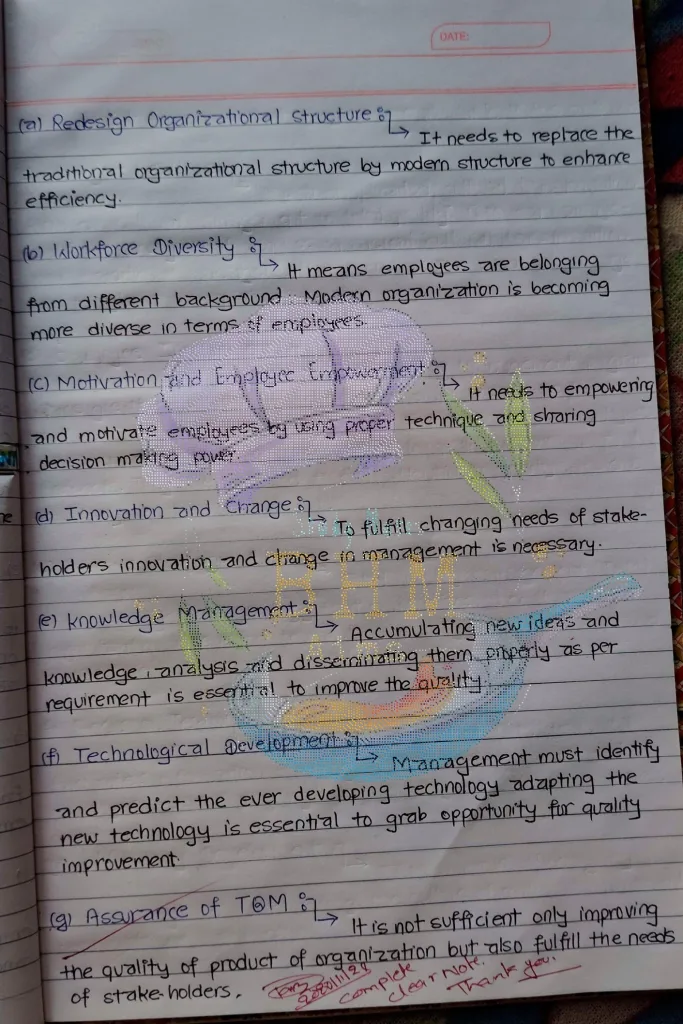 DATE:
(a) Redesign Organizational Structure :
It needs to replace the
traditional organizational structure by modern structure to enhance
efficiency.
(b) Workforce Diversity :
It means employees are belonging
from different background. Modern organization is becoming
more diverse in terms of employees.
(c) Motivation and Employee Empowerment :
It needs to empowering
and motivate employees by using proper technique and sharing
decision making power
(d) Innovation and Change :
To fulfill changing needs of stake-
holders innovation and change in management is necessary.
BHM
(e) Knowledge Management :
Accumulating new ideas and
knowledge, analysis and disseminating them properly as per
requirement is essential to improve the quality.
(f) Technological Development :
Management must identify
and predict the ever developing technology adapting the
new technology is essential to grab opportunity for quality
improvement.
(g) Assurance of TQM :
It is not sufficient only improving
the quality of product of organization but also fulfill the needs
of stake-holders.
complete
clear note.
Thank you.